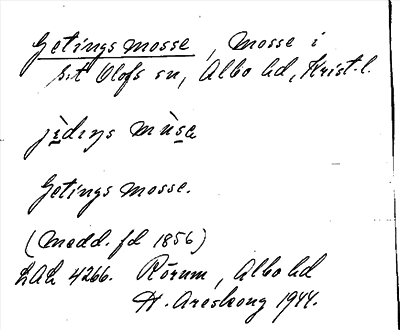 Getings mosse, mosse i
s:t Olofs sn, Albo hd, Krist. l.
Getings mosse.
(Medd. fd 1856)
LAL 4266. Rörum, Albo hd
H. Areskoug 1944.